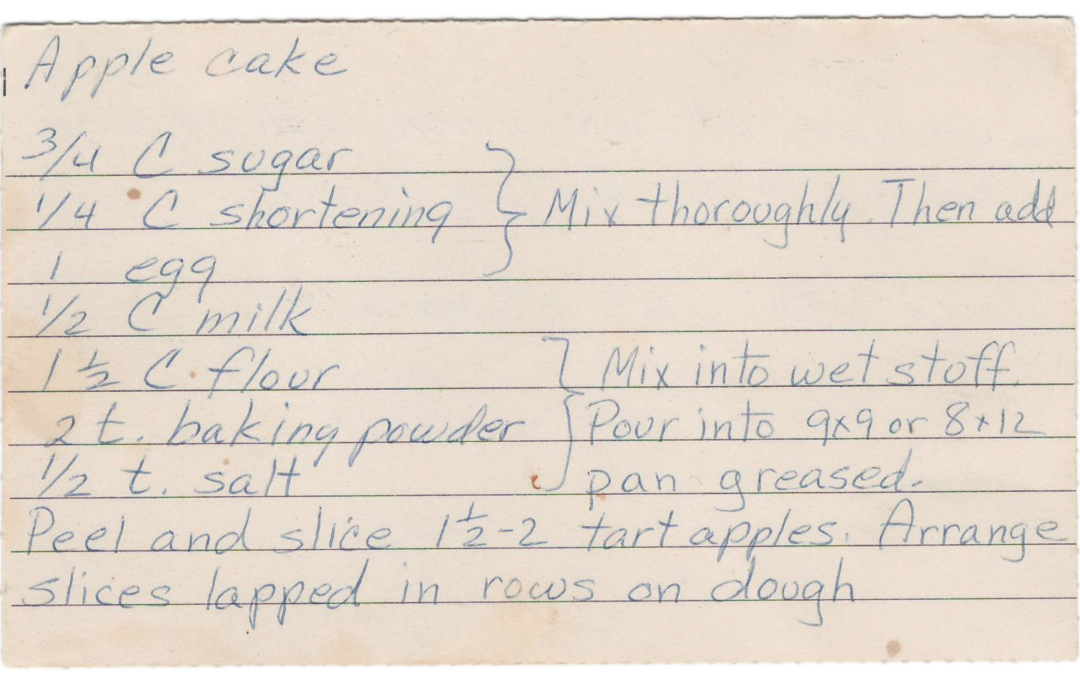 Apple cake
3/4 C sugar
1/4 C shortening } Mix thoroughly. Then add
1 egg
1/2 C milk
1 1/2 C flour } Mix into wet stuff.
2 t. baking powder Pour into 9x9 or 8x12
1/2 t. salt pan greased.
Peel and slice 1 1/2-2 tart apples. Arrange
slices lapped in rows on dough